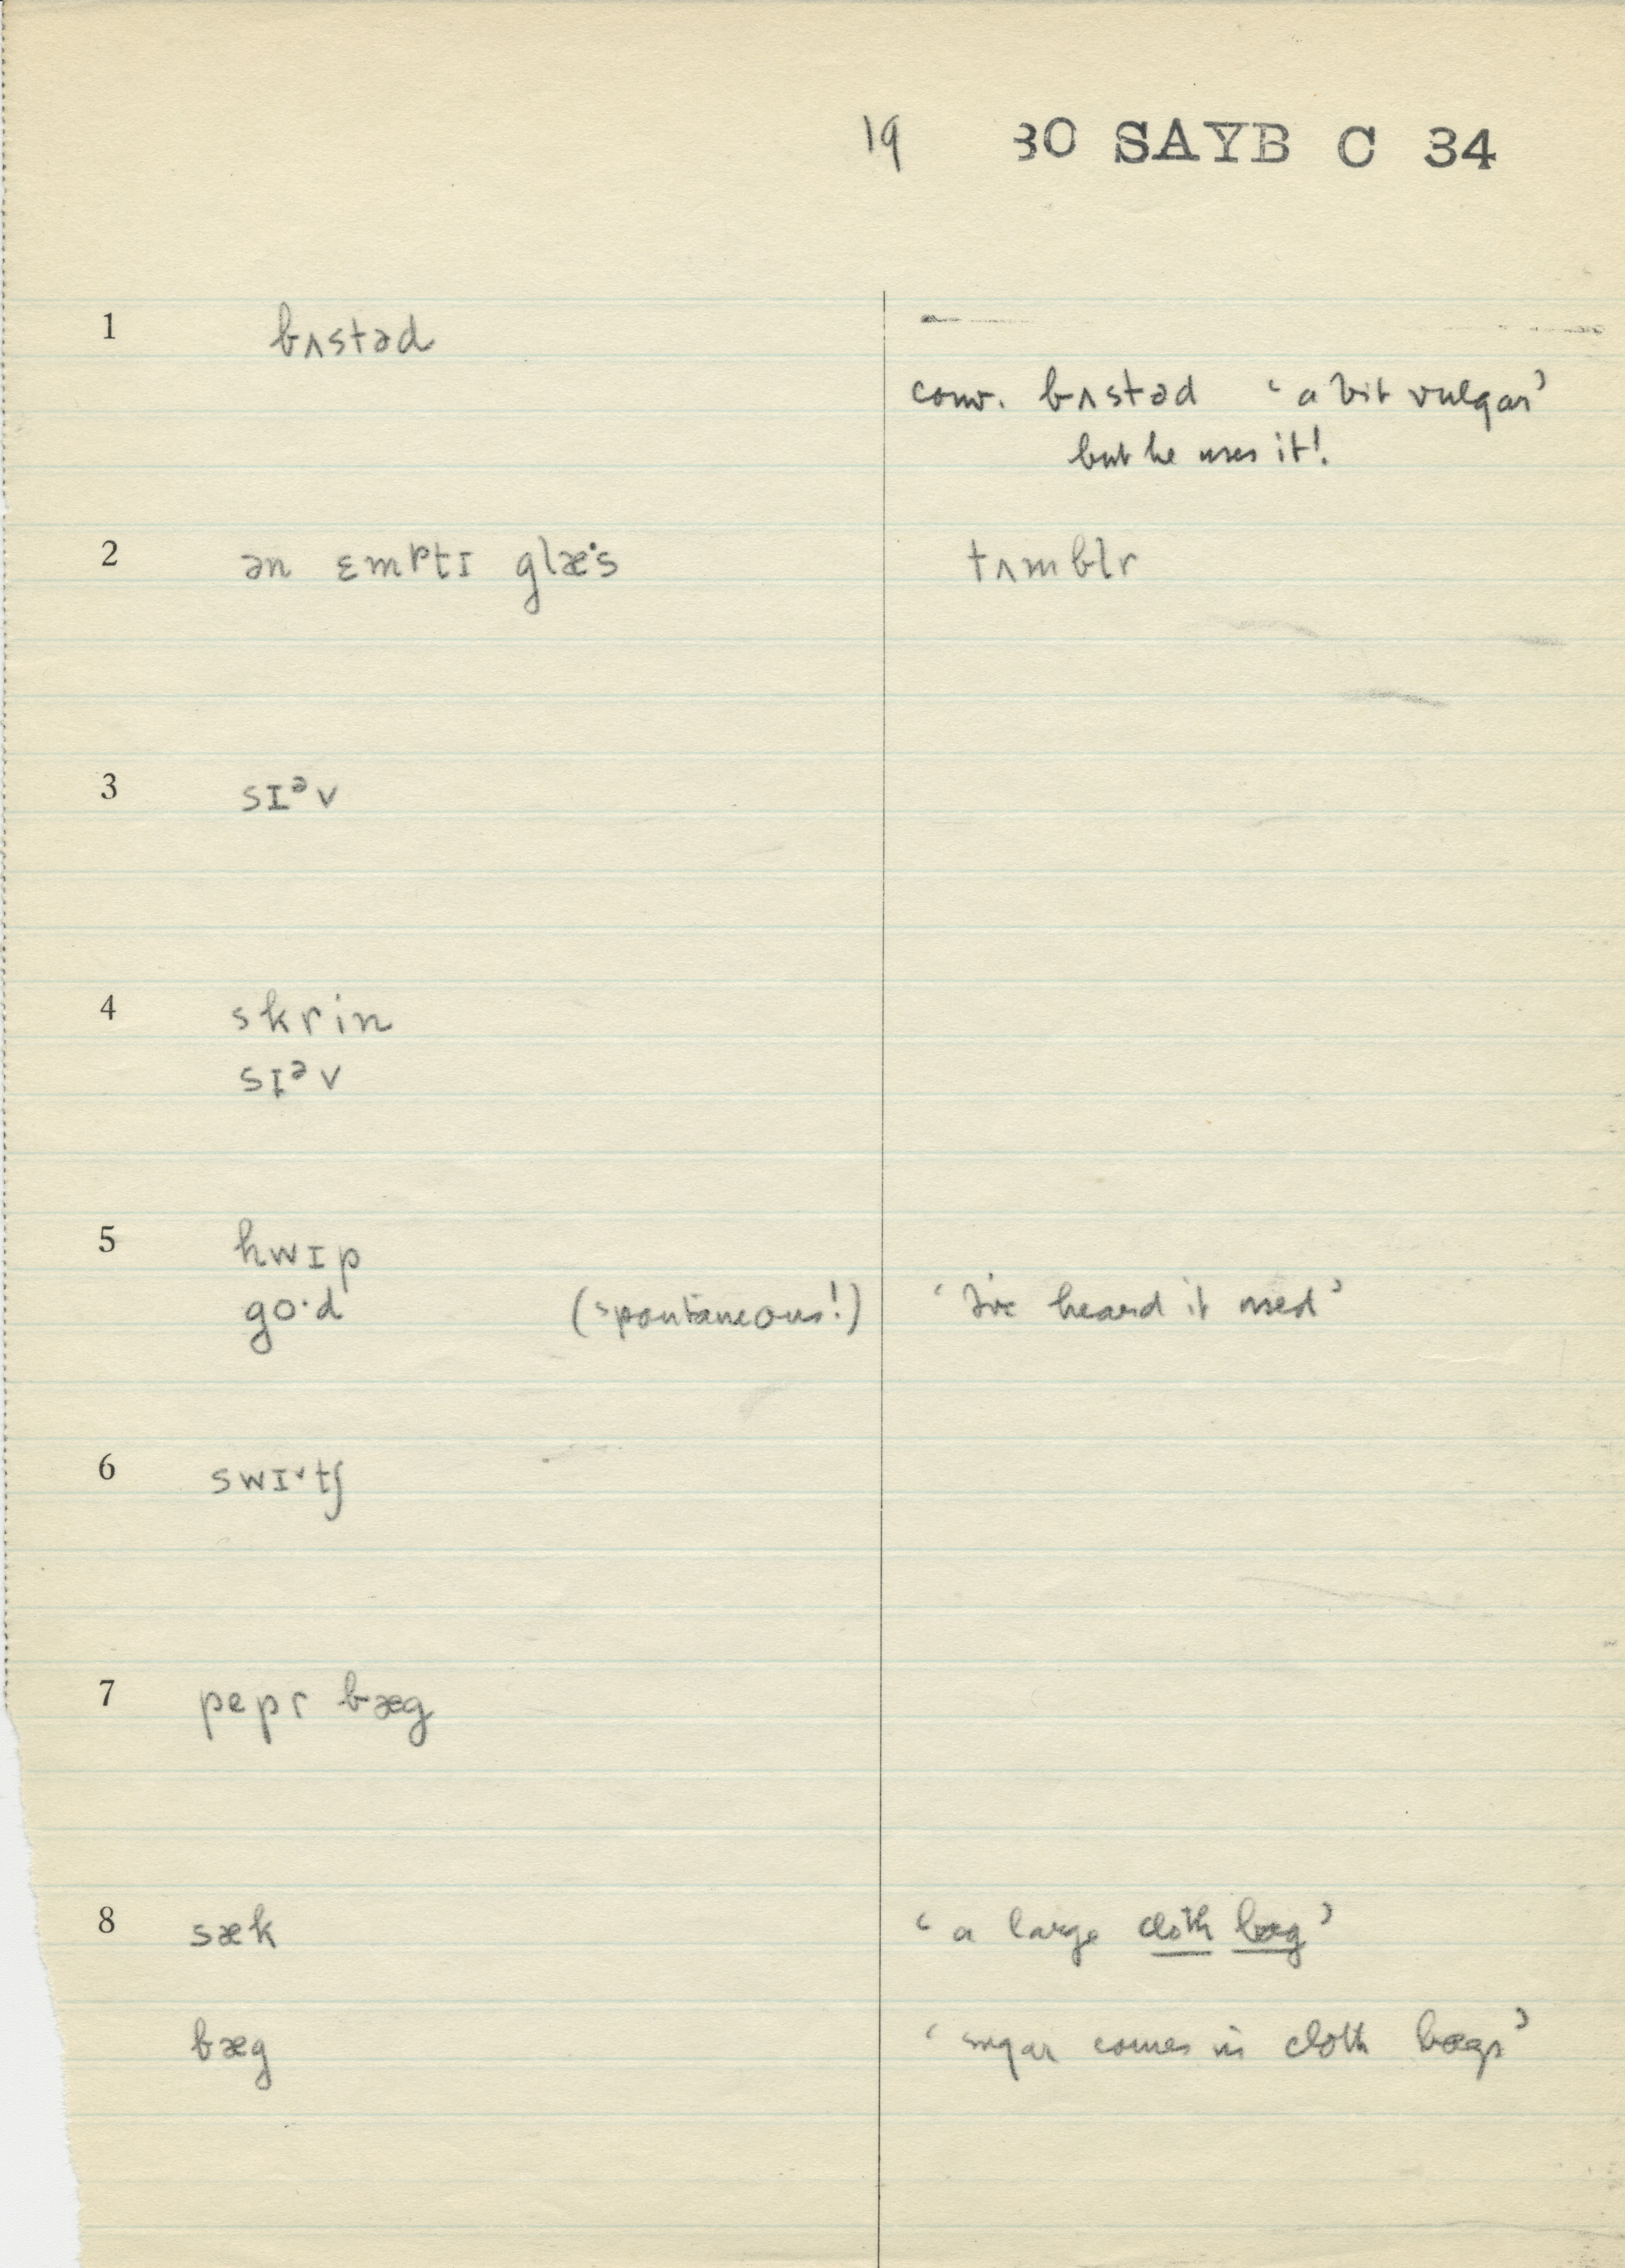 19 30 SAYB C 34
1 bʌstəd
conv. bʌstəd ‘a bit vulgar’
but he uses it!
2 ən ɛmptɪ glæˑs tʌmblr
3 sɪᵊv
4 skrin
sɪᵊv
5 hwɪp
goˑd (spontaneous!) ‘I've heard it used’
6 swɪˑtʃ
7 pepr bæg
8 sæk ‘a large cloth bæg’
bæg ‘sugar comes in cloth bægs’